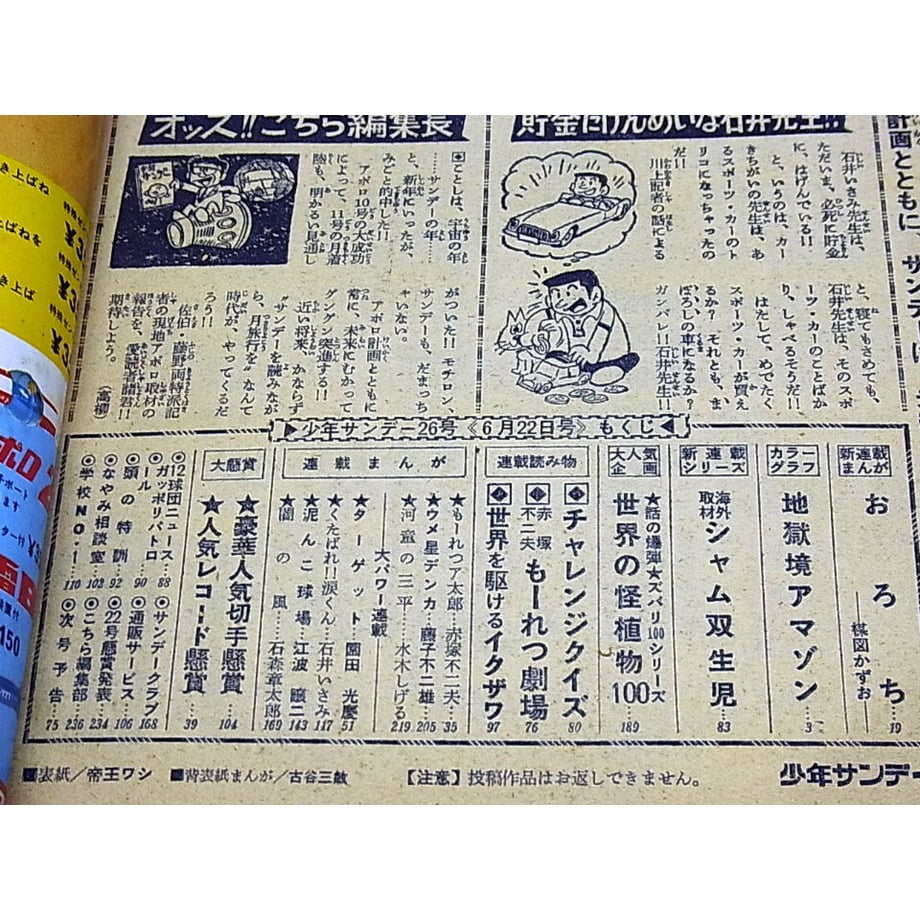 計画とともに サンデー
貯金にけんめいな石井先生!!
石井いさみ先生は、
ただいま、必死に貯金
に、はげんでいる!!
と、いうのは、カー
きちがいの先生は、あ
るスポーツ・カーのト
リコになっちゃったの
だ!!
川上記者の話による
と、寝てもさめても、
石井先生は、そのスポ
ーツ・カーのことばか
り、しゃべるそうだ!!
はたして、めでたく
スポーツ・カーが買え
るか? それとも、ま
ぼろしの車になるか?
ガンバレ!!石井先生!!
オッス!!こちら編集長
ことしは、宇宙の年
……サンデーの年……
と、新年にいったが、
みごと的中した!!
アポロ10号の大成功
によって、11号の月着
陸も、明かるい見通し
がついた!! モチロン、
サンデーも、だまっち
ゃいない。
アポロ計画とともに
常に、未来にむかって
グングン突進する!!
近い将来、かならず
〝サンデーを読みなが
ら、月旅行を〟なんて
時代が、やってくるだ
ろう!!
佐伯、藤野両特派記
者の現地アポロ取材の
報告を、愛読者諸君!!
期待しよう。
(高柳)
少年サンデー26号《6月22日号》もくじ
新連載まんが
おろち…19
──楳図かずお
カラーグラフ
地獄境アマゾン…3
新連載シリーズ
海外取材 シャム双生児…83
大人気企画
★話の爆弾★ズバリ100シリーズ
世界の怪植物100…189
連載読み物
チャレンジクイズ…80
赤塚不二夫 もーれつ劇場…76
世界を駆けるイクザワ…97
連載まんが
★もーれつア太郎…赤塚不二夫…35
★ウメ星デンカ…藤子不二雄…205
★河童の三平…水木しげる…219
大パワー連載
★ターゲット…園田光慶…51
★くたばれ!!涙くん…石井いさみ…117
★泥んこ球場…江波譲二…143
★闇の風…石森章太郎…169
大懸賞
★豪華人気切手懸賞…104
★人気レコード懸賞…39
●12球団ニュース…88
●ガッポリパトロール…90
●頭の特訓…92
●なやみ相談室…103
●学校NO・1…110
●サンデークラブ…168
●通販サービス…106
●22号懸賞発表…234
●こちら編集部…236
●次号予告…75
■表紙/帝王ワシ ■背表紙まんが/古谷三敏 【注意】投稿作品はお返しできません。 少年サンデー
き上ばね
上ばねを
き上ば
ポロ
150